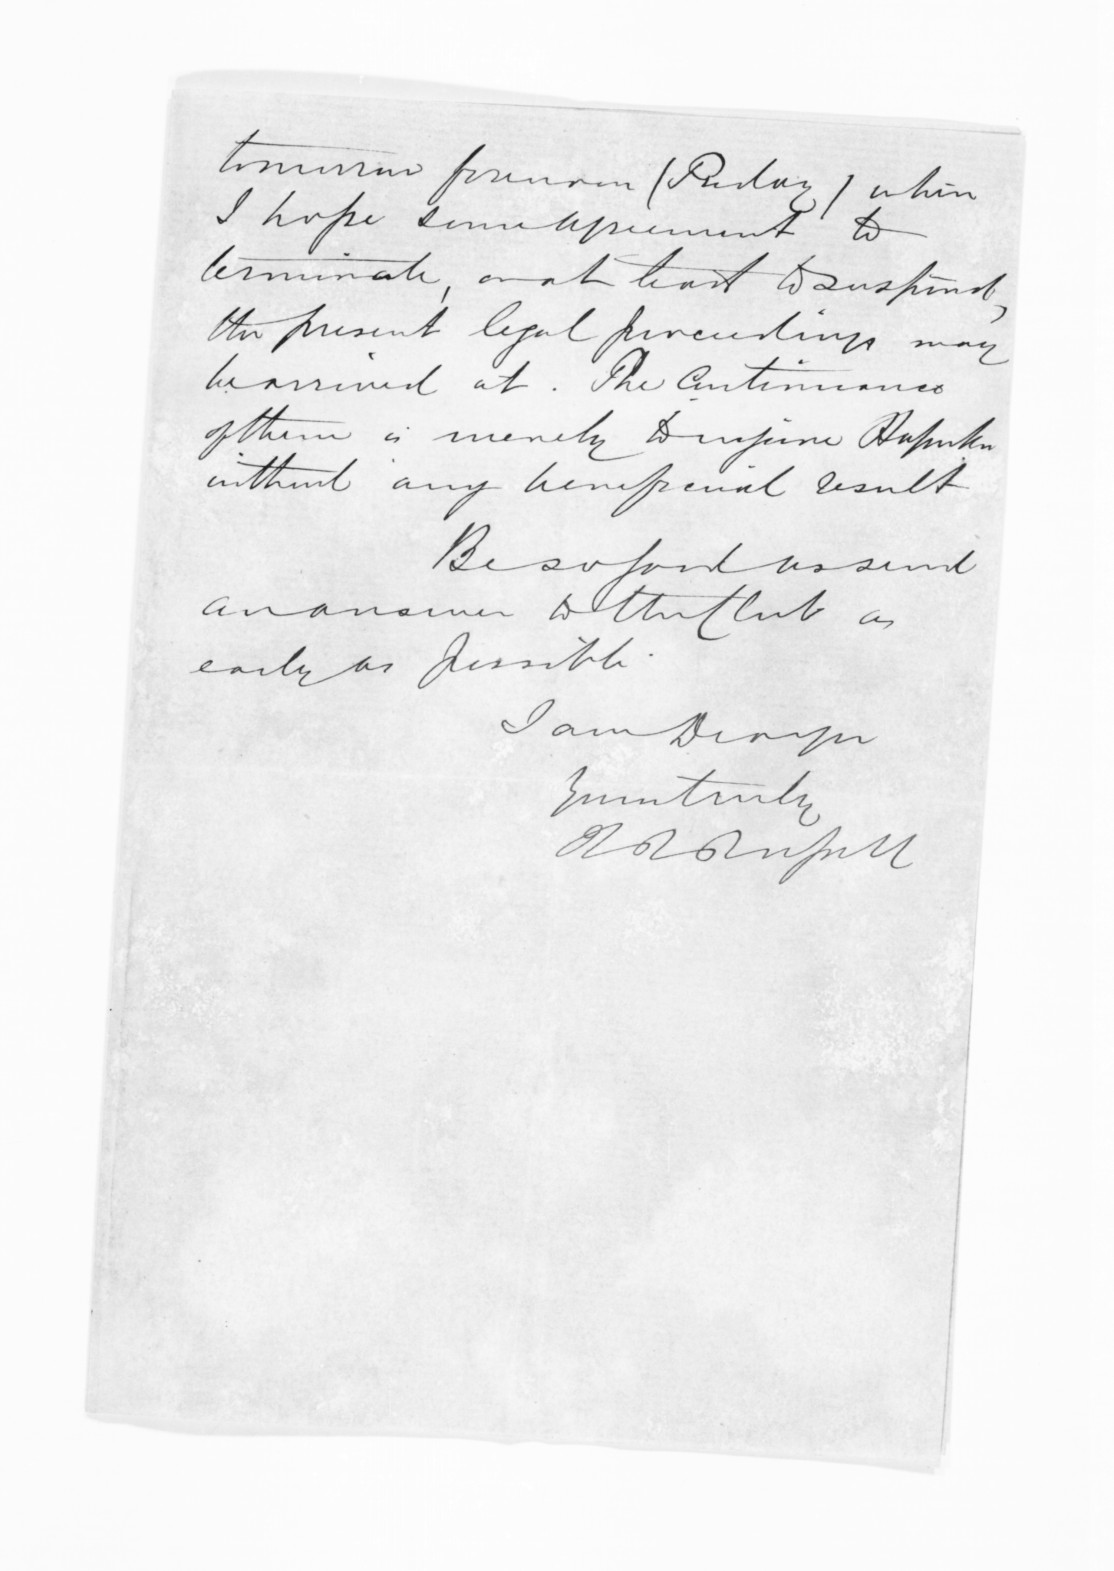 tomorrow forenoon (Friday) when
I hope some agreement to
terminate, or at least to suspend,
the present legal proceedings may
be arrived at. The continuance
of them is merely to injure Hapuku
without any beneficial result
Be so good as send
an answer to the Club as
early as possible.
I am Dear Sir
Yours truly
H R Russell